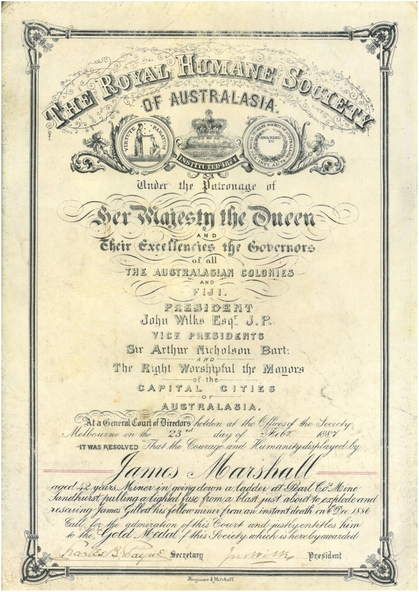 THE ROYAL HUMANE SOCIETY
OF AUSTRALASIA.
INSTITUTED 1874
Under the Patronage of
Her Majesty the Queen
AND
Their Excellencies the Governors
of all
THE AUSTRALASIAN COLONIES
AND
FIJI.
PRESIDENT
John Wilks Esqr. J.P.
VICE PRESIDENTS
Sir Arthur Nicholson Bart:
AND
The Right Worshipful the Mayors
of the
CAPITAL CITIES
OF
AUSTRALASIA.
At a General Court of Directors holden at the Offices of the Society
Melbourne on the 23rd day of Feb. 1887
IT WAS RESOLVED That the Courage and Humanity displayed by
James Marshall
aged 42 years, Miner in going down a ladder at Pearl Co. Mine
Sandhurst, pulling a lighted fuse from a blast just about to explode and
rescuing James Gilbert his fellow miner from an instant death on 4 Dec. 1886
Call for the admiration of this Court and justly entitles him
to the Gold Medal of this Society which is hereby awarded
Secretary President